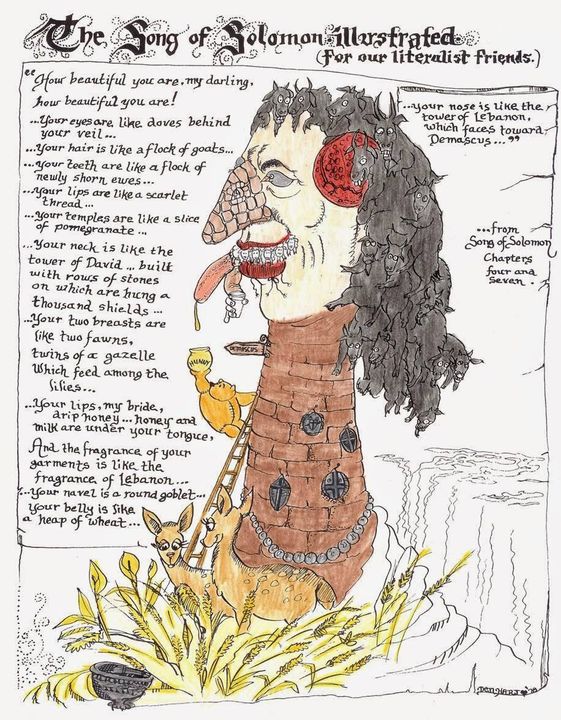 The Song of Solomon illustrated
(For our literalist friends.)
"How beautiful you are, my darling,
how beautiful you are!
...Your eyes are like doves behind
your veil...
...Your hair is like a flock of goats...
...Your teeth are like a flock of
newly shorn ewes...
...Your lips are like a scarlet
thread...
...Your temples are like a slice
of pomegranate...
...Your neck is like the
tower of David... built
with rows of stones
on which are hung a
thousand shields...
...Your two breasts are
like two fawns,
twins of a gazelle
Which feed among the
lilies...
...Your lips, my bride,
drip honey... honey and
milk are under your tongue,
And the fragrance of your
garments is like the
fragrance of Lebanon...
...Your navel is a round goblet...
your belly is like
a heap of wheat...
...your nose is like the
tower of Lebanon,
which faces toward
Demascus..."
...from
Song of Solomon
Chapters
four and
seven.
DEMASCUS
HUNNY
Den Hart